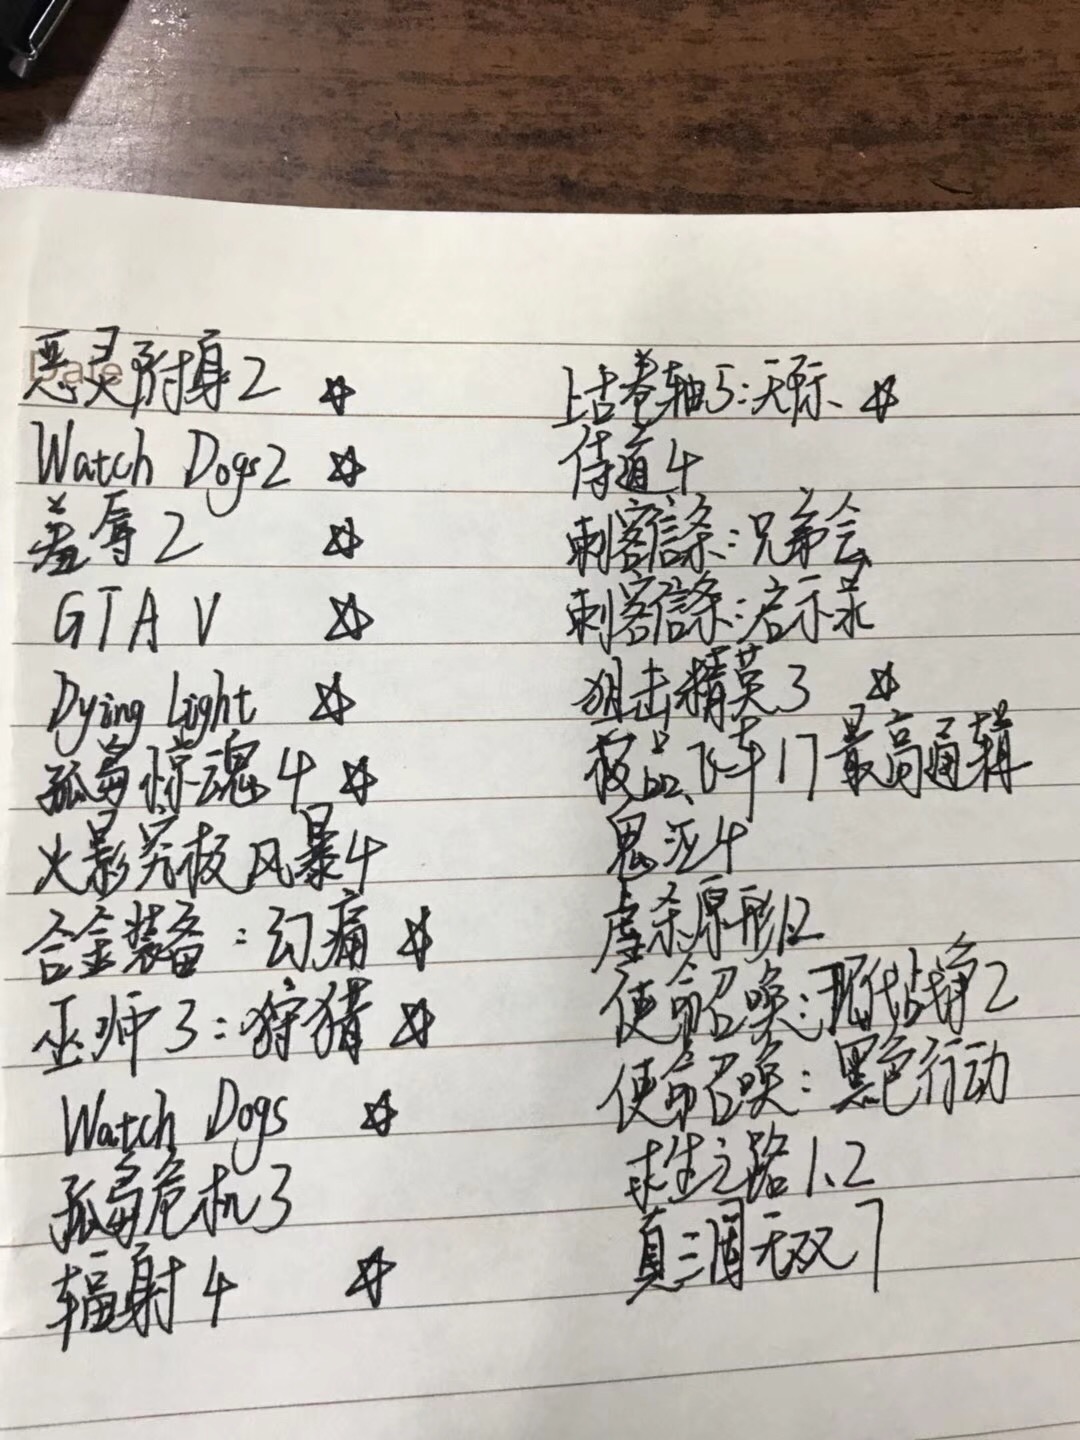 Date
恶灵附身2 ☆
Watch Dogs2 ☆
羞辱2 ☆
GTA V ☆
Dying Light ☆
孤岛惊魂4 ☆
火影究极风暴4
合金装备:幻痛 ☆
巫师3:狩猎 ☆
Watch Dogs ☆
孤岛危机3
辐射4 ☆
上古卷轴5:天际、☆
侍道4
刺客信条:兄弟会
刺客信条:启示录
狙击精英3 ☆
极品飞车17最高通辑
鬼泣4
虐杀原形12
使命召唤:现代战争2
使命召唤:黑色行动
求生之路1、2
真三国无双7